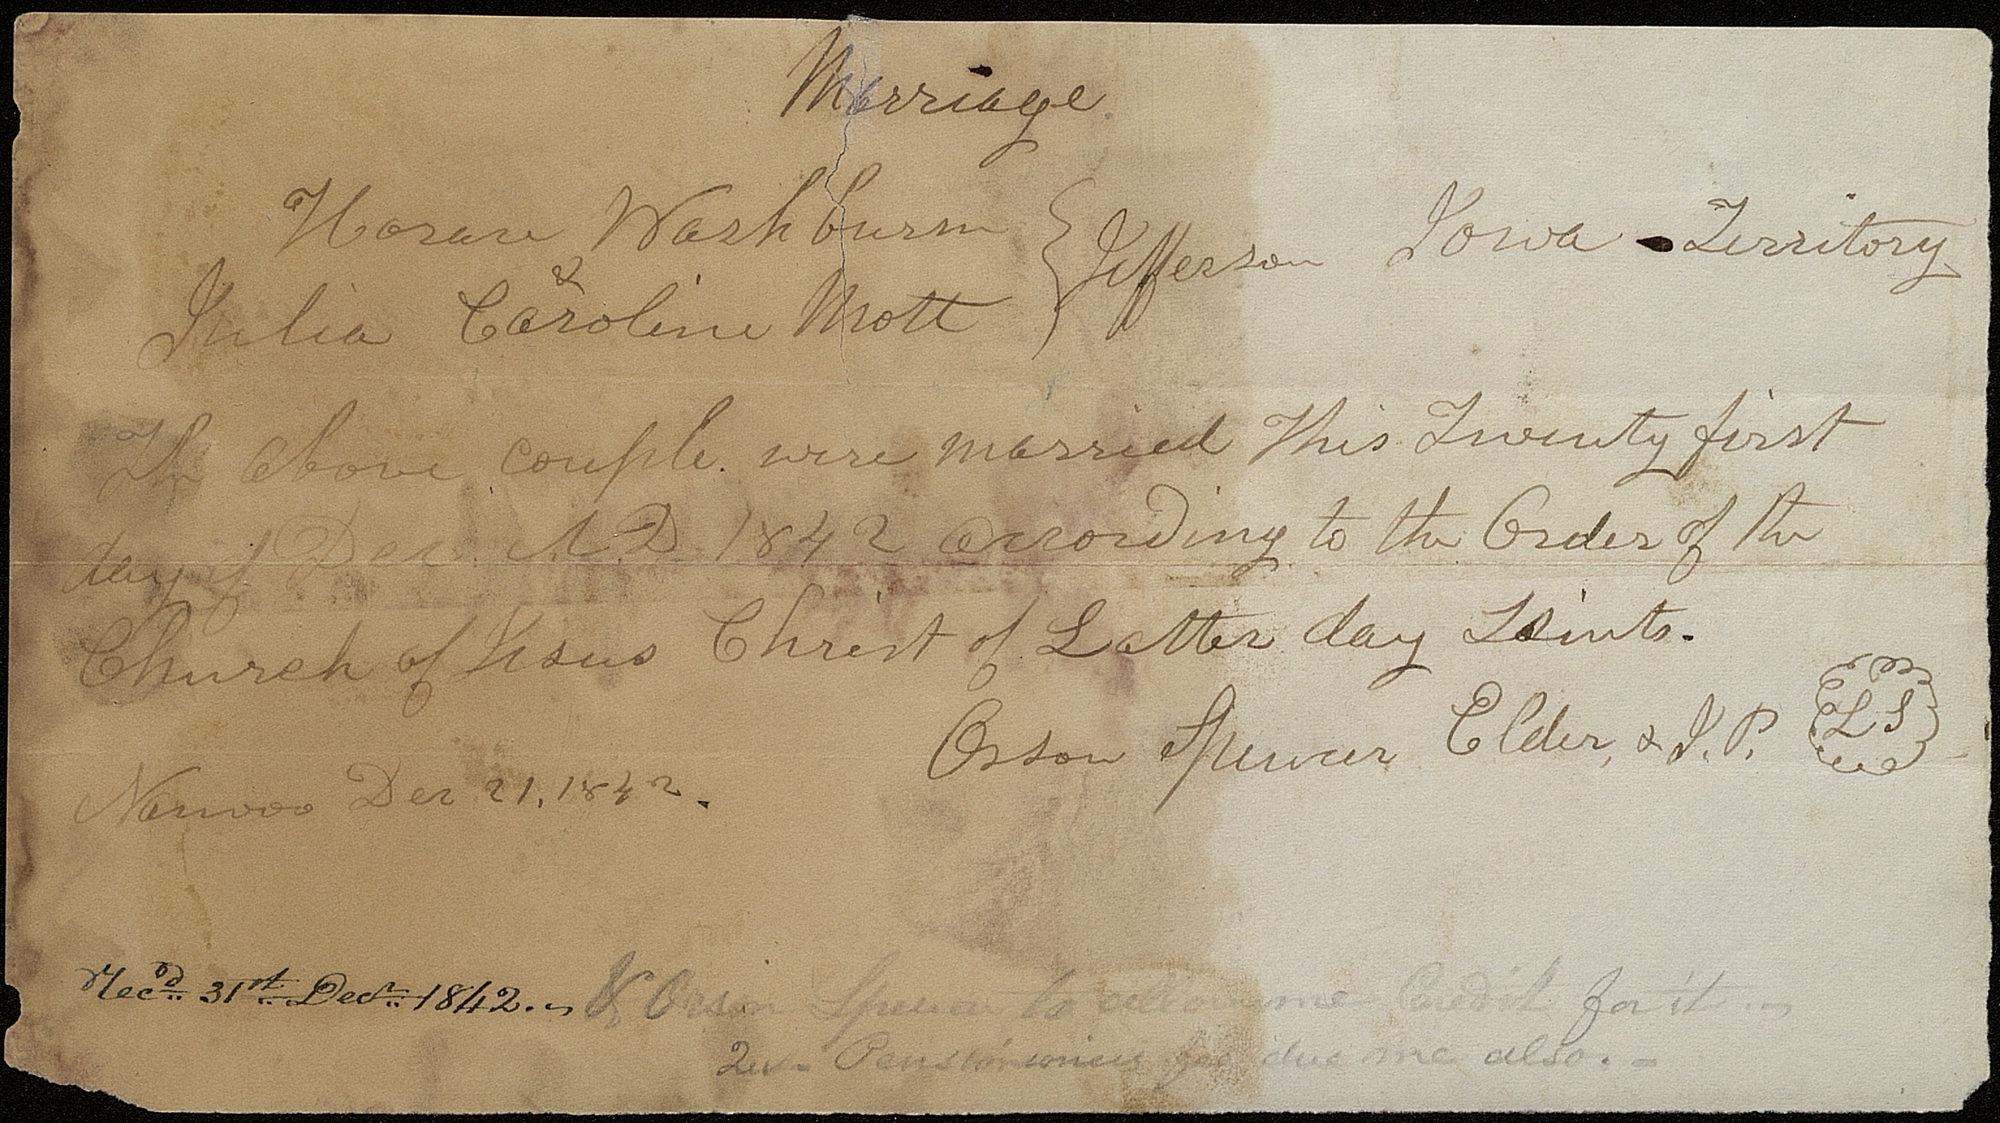 Marriage.
Horace Washburn
&
Julia Caroline Mott
} Jefferson Iowa - Territory
The above couple were married This Twenty first
day of Dec. A D 1842 according to the Order of the
Church of Jesus Christ of Latter day Saints.
Orson Spencer Elder, & J. P. L S
Nauvoo Dec 21, 1842.
Recd 31st Decr 1842. & Orson Spencer to allow me Credit for it
fee due me also. -